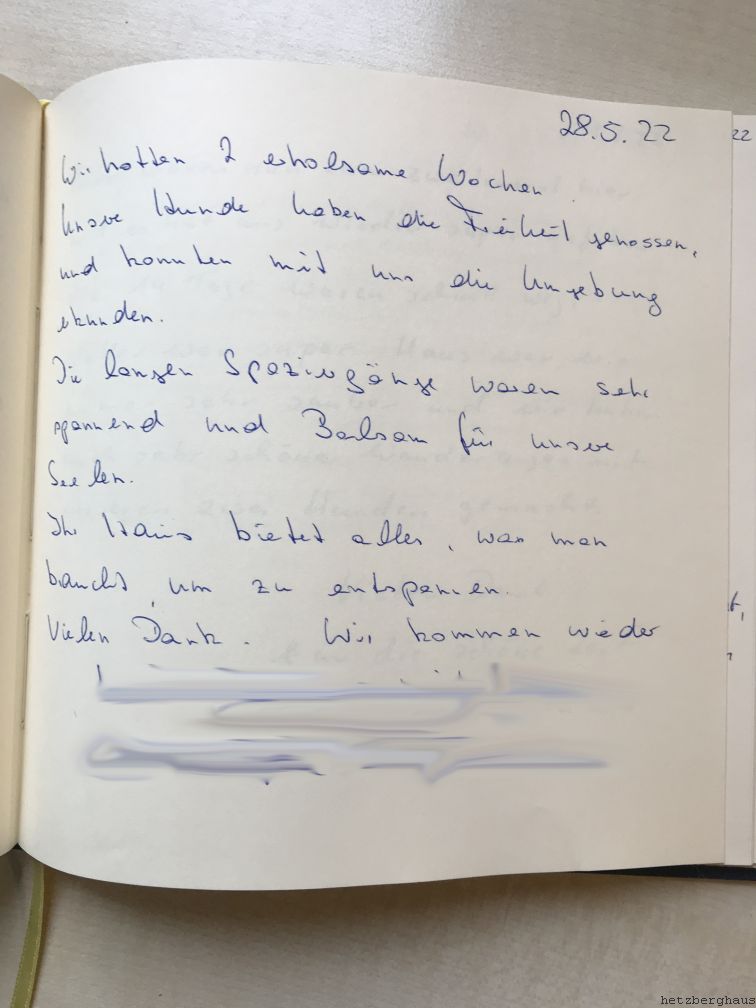 28.5.22
Wir hatten 2 erholsame Wochen.
Unsre Hunde haben die Freiheit genossen,
und konnten mit uns die Umgebung
erkunden.
Die langen Spaziergänge waren sehr
spannend und Balsam für unsre
Seelen.
Ihr Haus bietet alles, was man
braucht, um zu entspannen.
Vielen Dank. Wir kommen wieder
22
hetzberghaus